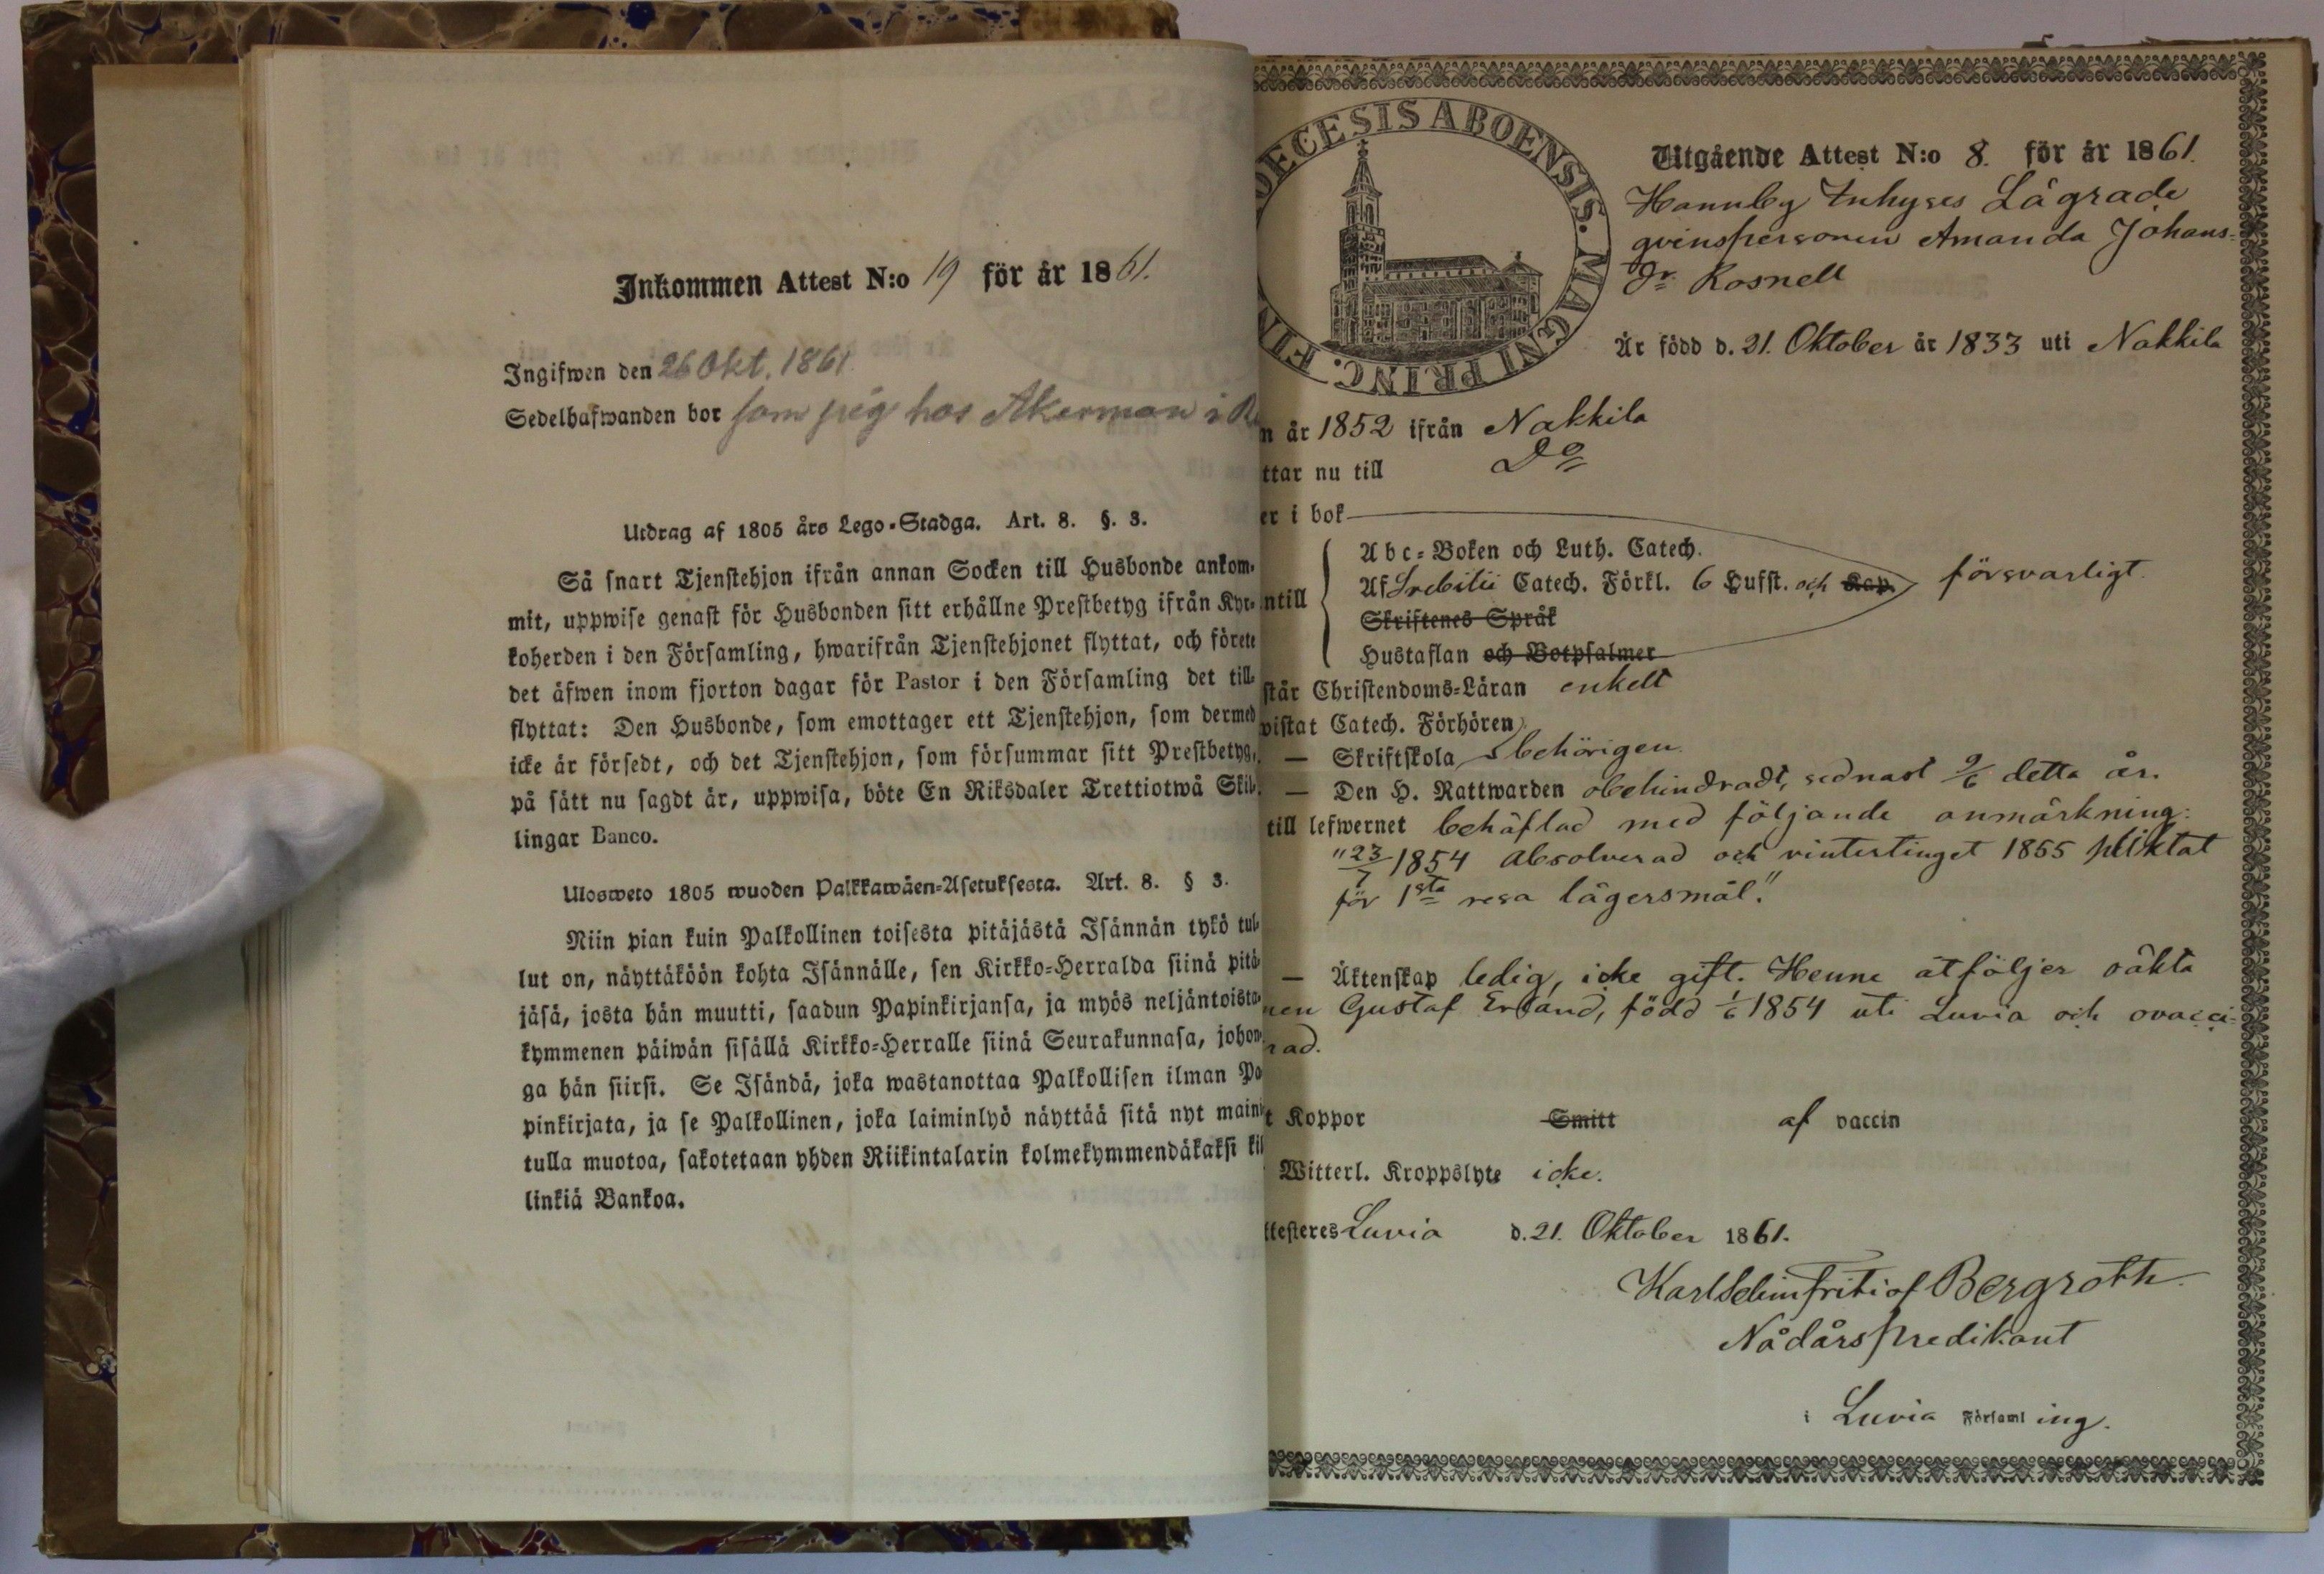 Inkommen Attest N:o 19 för år 1861.
Ingifwen den 26 Okt. 1861
Sedelhafwanden bor som pig hos Åkerman i
Utdrag af 1805 års Lego-Stadga. Art. 8. §. 3.
Så snart Tjenstehjon ifrån annan Socken till Husbonde ankom-
mit, uppwise genast för Husbonden sitt erhållne Prestbetyg ifrån Kyr-
koherden i den Församling, hwarifrån Tjenstehjonet flyttat, och förete
det äfwen inom fjorton dagar för Pastor i den Församling det till-
flyttat: Den Husbonde, som emottager ett Tjenstehjon, som dermed
icke är försedt, och det Tjenstehjon, som försummar sitt Prestbetyg,
på sätt nu sagdt är, uppwisa, böte En Riksdaler Trettiotwå Skil-
lingar Banco.
Ulosweto 1805 wuoden Palkkawäen-Asetuksesta. Art. 8. § 3.
Niin pian kuin Palkollinen toisesta pitäjästä Isännän tykö tul-
lut on, näyttäköön kohta Isännälle, sen Kirkko-Herralda siinä pitä-
jäsä, josta hän muutti, saadun Papinkirjansa, ja myös neljäntoista-
kymmenen päiwän sisällä Kirkko-Herralle siinä Seurakunnasa, johon-
ga hän siirsi. Se Isändä, joka wastanottaa Palkollisen ilman Pa
pinkirjata, ja se Palkollinen, joka laiminlyö näyttää sitä nyt maini
tulla muotoa, sakotetaan yhden Riikintalarin kolmekymmendäkaksi kil
linkiä Bankoa.
DECESIS ABOENSIS. MAGNI PRINC. FIN
Utgående Attest N:o 8. för år 1861.
Hannby Inhyses Lägrade
qvinspersonen Amanda Johans=
Dr Rosnell
Är född d. 21. Oktober år 1833 uti Nakkila
n år 1852 ifrån Nakkila
ttar nu till Do
er i bok
ntill
Abc=Boken och Luth. Catech.
Af Srebilii Catech. Förkl. 6 Hufst. och Kap. försvarligt.
Skriftenes Språk
Hustaflan och Botpsalmer
står Christendoms=Läran enkelt
vistat Catech. Förhören
— Skriftskola behörigen.
— Den H. Nattwarden obehindradt, sednast 9/6 detta år.
till lefwernet behäftad med följande anmärkning:
"23/7 1854 absolverad och vintertinget 1855 pliktat
för 1sta resa lägersmål."
— Äktenskap ledig, icke gift. Henne åtföljer oäkta
nen Gustaf Erland, född 1/6 1854 uti Luvia och ovacci=
rad.
t Koppor Smitt af vaccin
Witterl. Kroppslyte icke.
ttesteres Luvia d. 21. Oktober 1861.
Karl Selim Fritiof Bergroth
Nådårspredikant
i Luvia Församling.